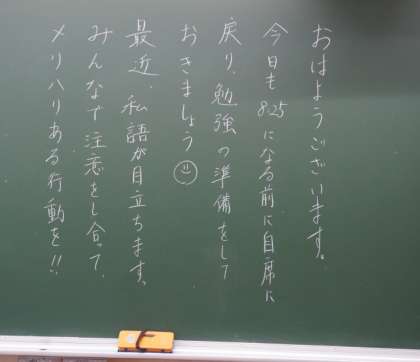 おはようございます。
今日も8:25になる前に自席に
戻り、勉強の準備をして
おきましょう
最近、私語が目立ちます。
みんなで注意をし合って、
メリハリある行動を!!